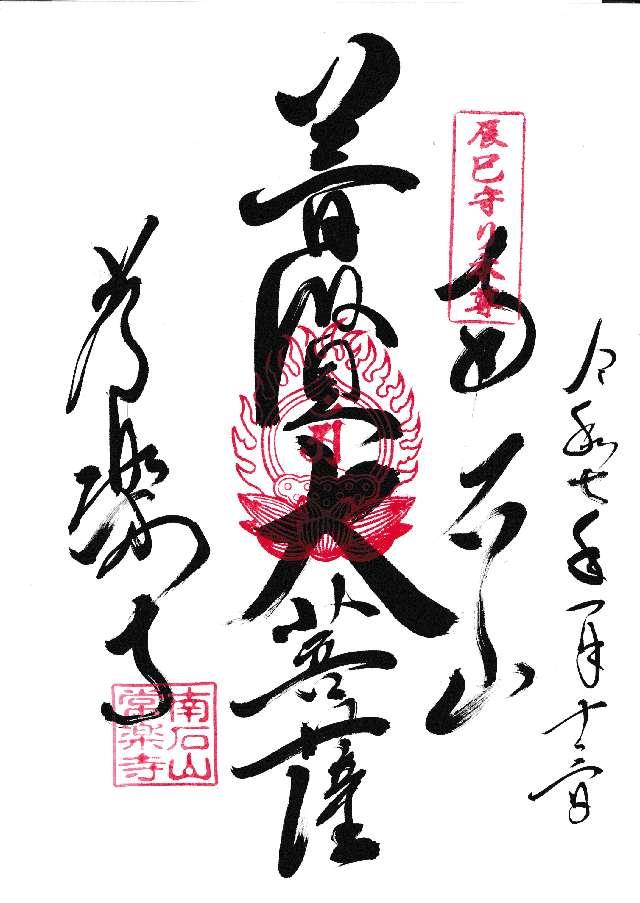 令和七年一月十二日
辰巳守り本尊
南石山
普賢大菩薩
常楽寺
南石山
常楽寺